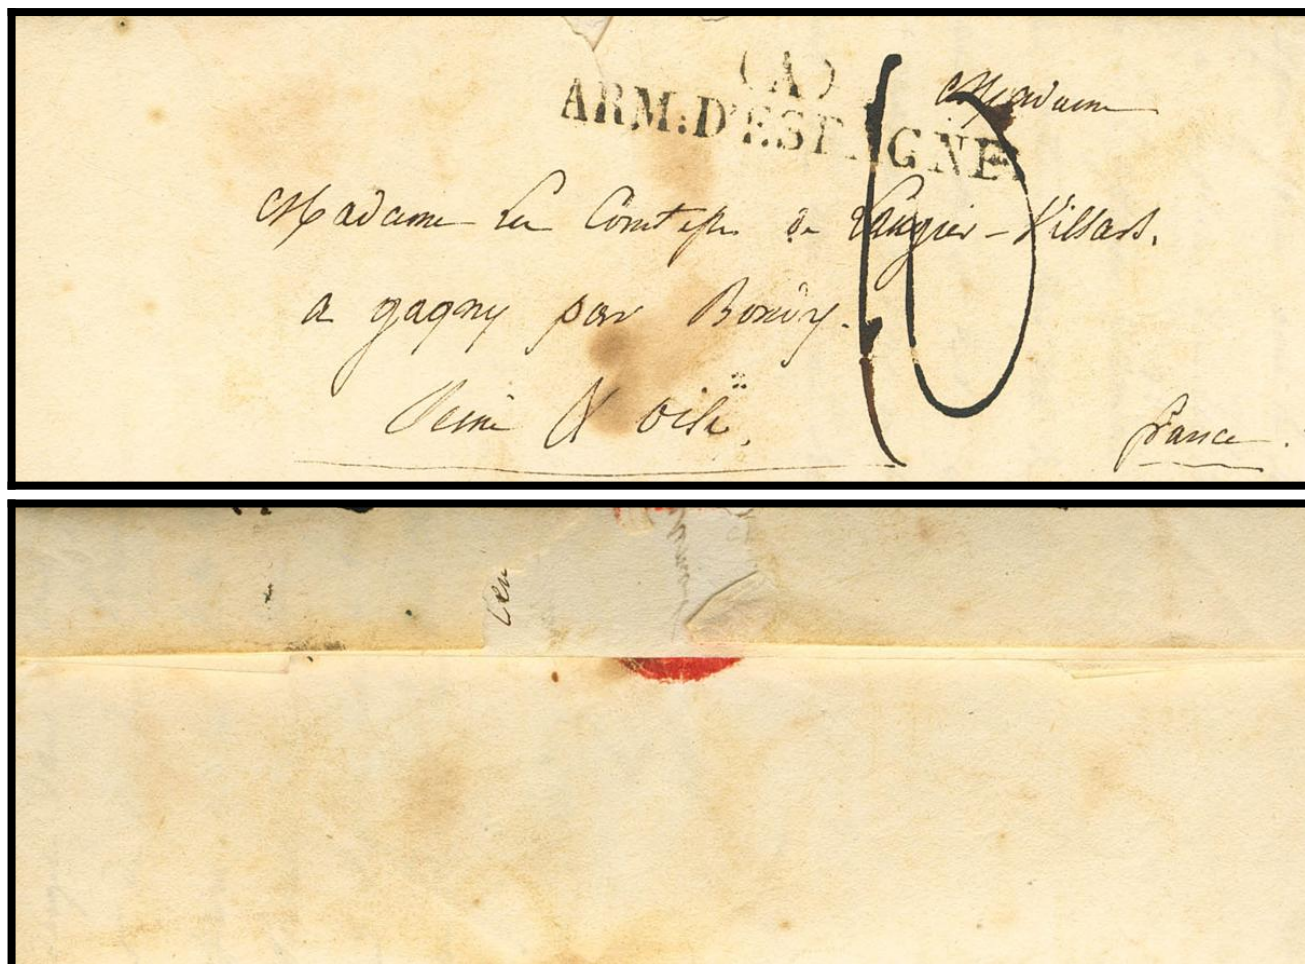 (A)
ARM: D'ESPAGNE
Madame
Madame La Comtesse de Laugier-Villars.
a gagny par Bondy.
Seine & oise.
france.